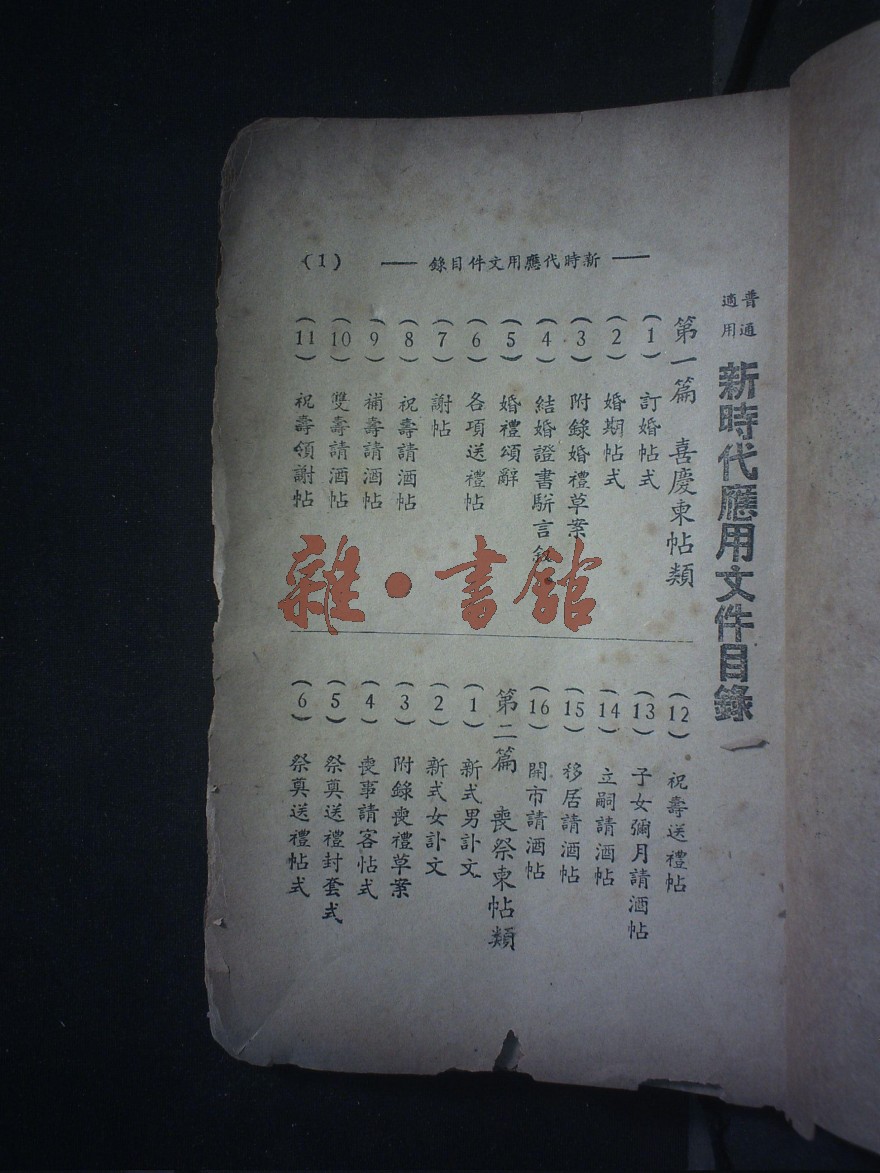 普通適用
新時代應用文件目錄
第一篇　喜慶柬帖類
(1)　訂婚帖式
(2)　婚期帖式
(3)　附錄婚禮草案
(4)　結婚證書駢言
(5)　婚禮頌辭
(6)　各項送禮帖
(7)　謝帖
(8)　祝壽請酒帖
(9)　補壽請酒帖
(10)　雙壽請酒帖
(11)　祝壽領謝帖
(12)　祝壽送禮帖
(13)　子女彌月請酒帖
(14)　立嗣請酒帖
(15)　移居請酒帖
(16)　開市請酒帖
第二篇　喪祭柬帖類
(1)　新式男訃文
(2)　新式女訃文
(3)　附錄喪禮草案
(4)　喪事請客帖式
(5)　祭奠送禮封套式
(6)　祭奠送禮帖式
新時代應用文件目錄
(1)
雜·書館